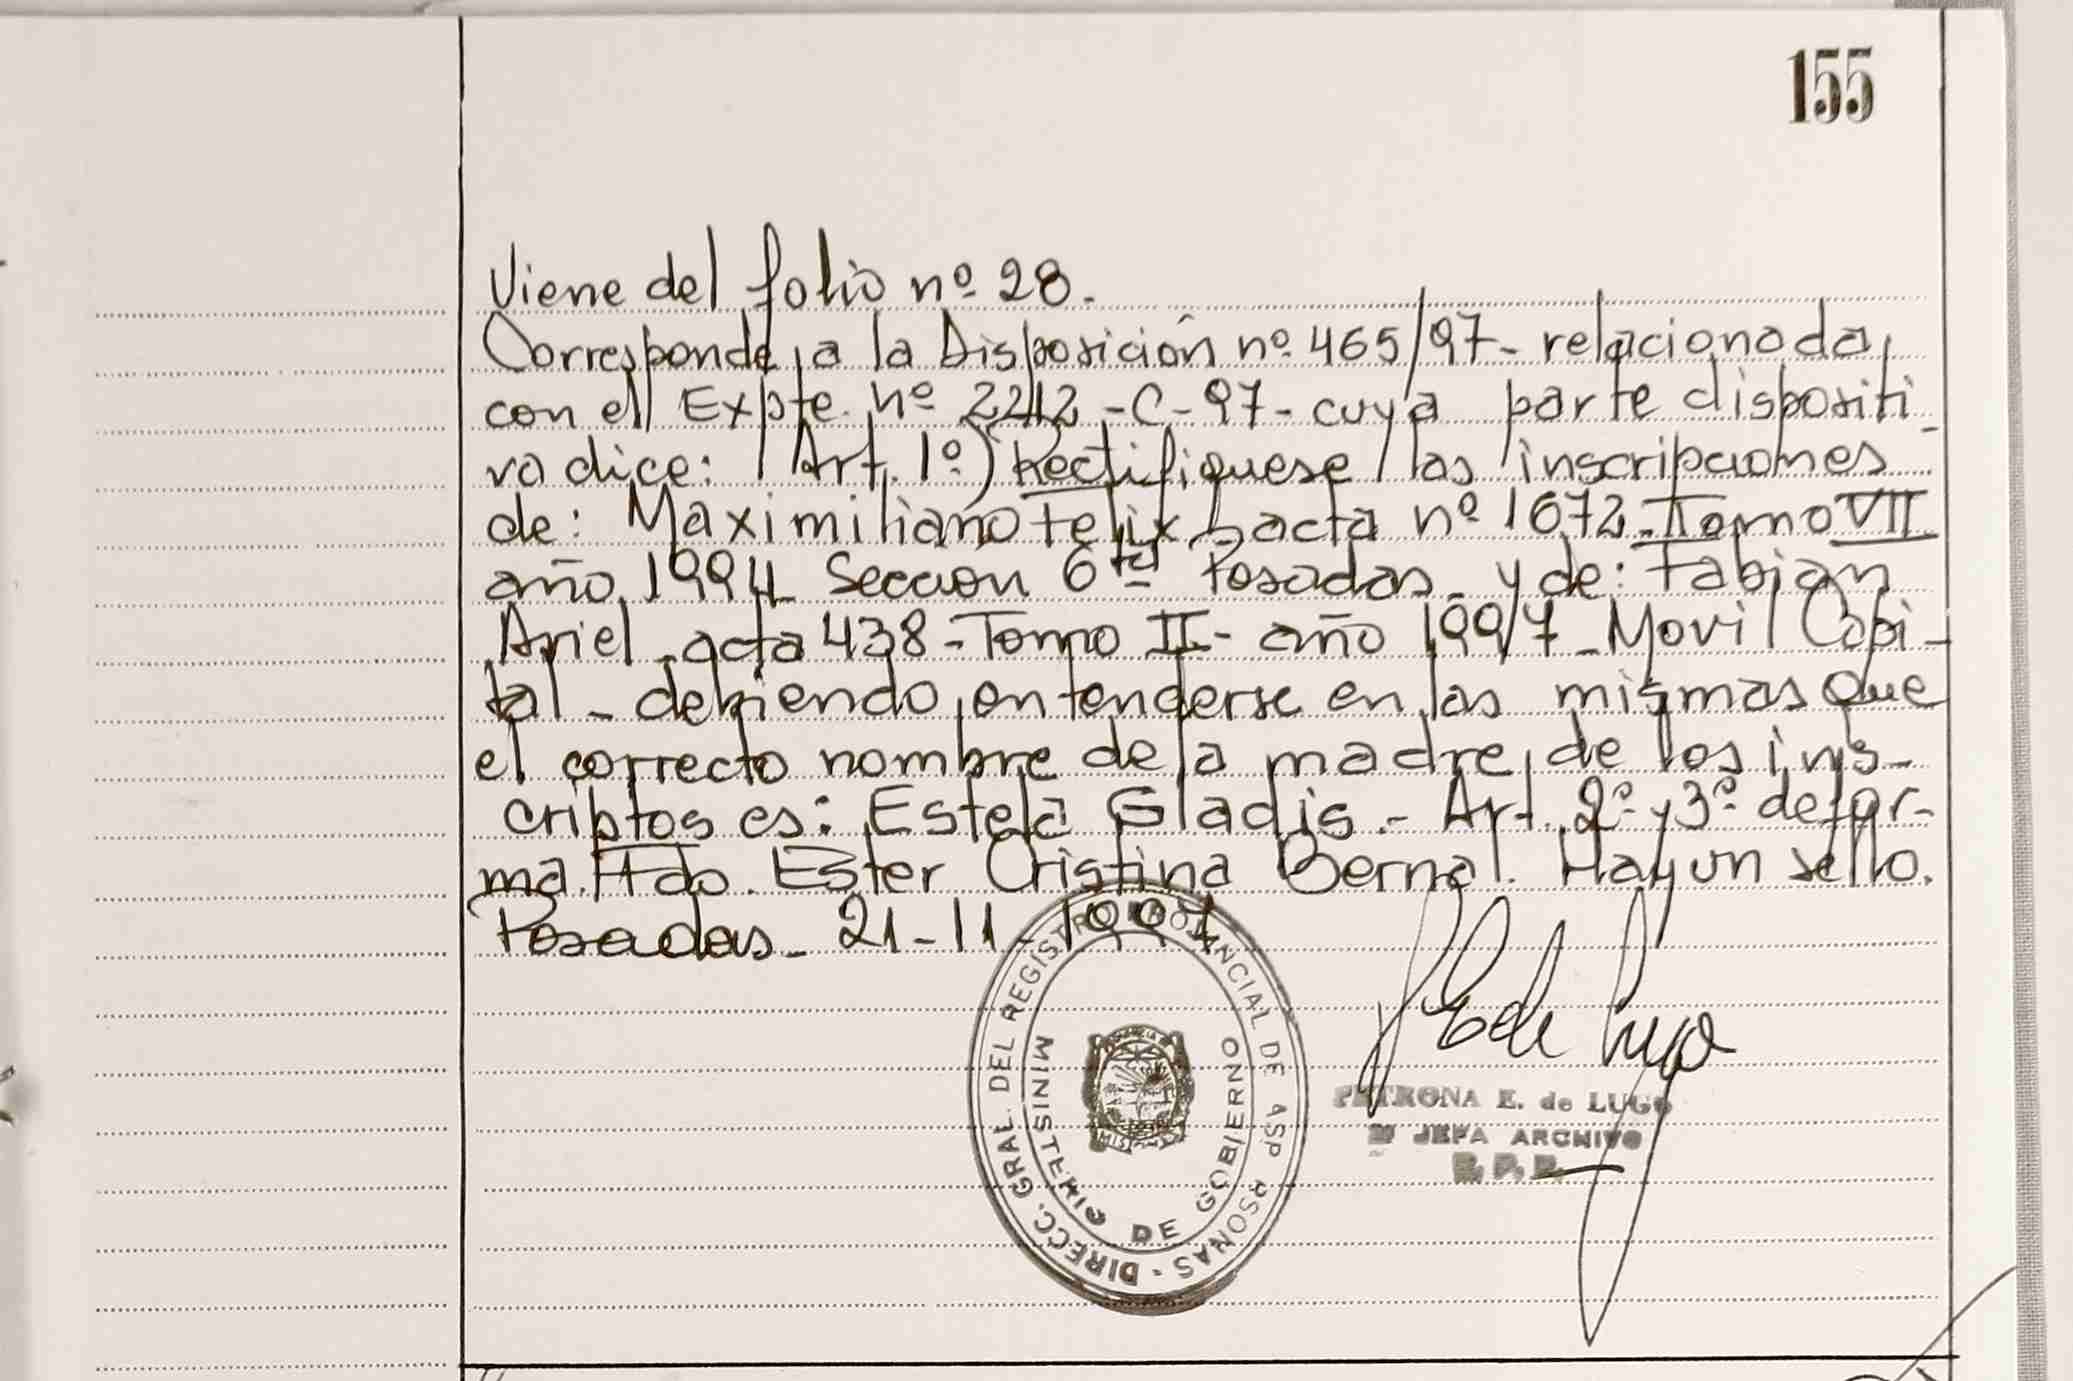 155
Viene del folio nº 28.
Corresponde a la Disposición nº 465/97- relacionada
con el Expte. nº 2212-C-97- cuya parte dispositi-
va dice: Art. 1º) Rectifiquese las inscripciones
de: Maximiliano Felix acta nº 1672- Tomo VII
año 1994 Seccion 6ta Posadas- y de: Fabian
Ariel acta 438-Tomo II- año 1997- Movil Capi-
tal- debiendo entenderse en las mismas que
el correcto nombre de la madre de los ins-
criptos es: Estela Gladis.- Art. 2º y 3º de for-
ma. Fdo. Ester Cristina Bernal. Hay un sello.
Posadas- 21-11-1997
DIRECC. GRAL. DEL REGISTRO PROVINCIAL DE
MINISTERIO DE GOBIERNO
PETRONA E. de LUGO
JEFA ARCHIVO
R. P. P.